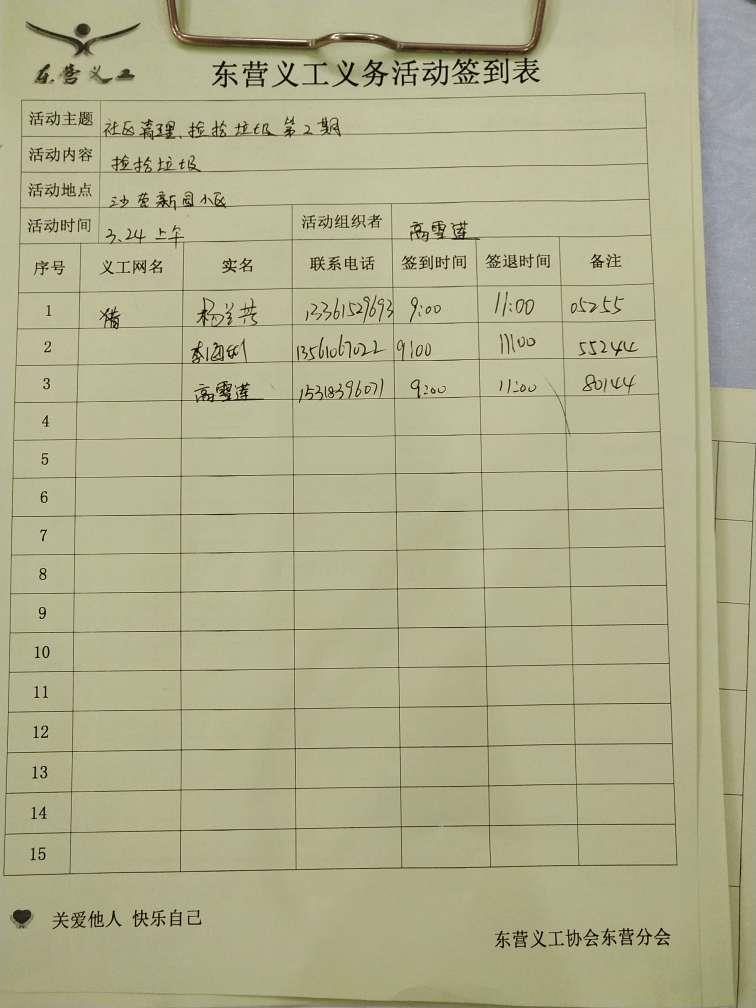 东营义工
东营义工义务活动签到表
活动主题 社区清理、捡拾垃圾 第2期
活动内容 捡拾垃圾
活动地点 沙营新园小区
活动时间 3.24 上午 活动组织者 高雪莲
序号 义工网名 实名 联系电话 签到时间 签退时间 备注
1 13361529693 9:00 11:00 05255
2 13561067022 9:00 11:00 55244
3 高雪莲 15318396071 9:00 11:00 80144
4
5
6
7
8
9
10
11
12
13
14
15
关爱他人 快乐自己
东营义工协会东营分会